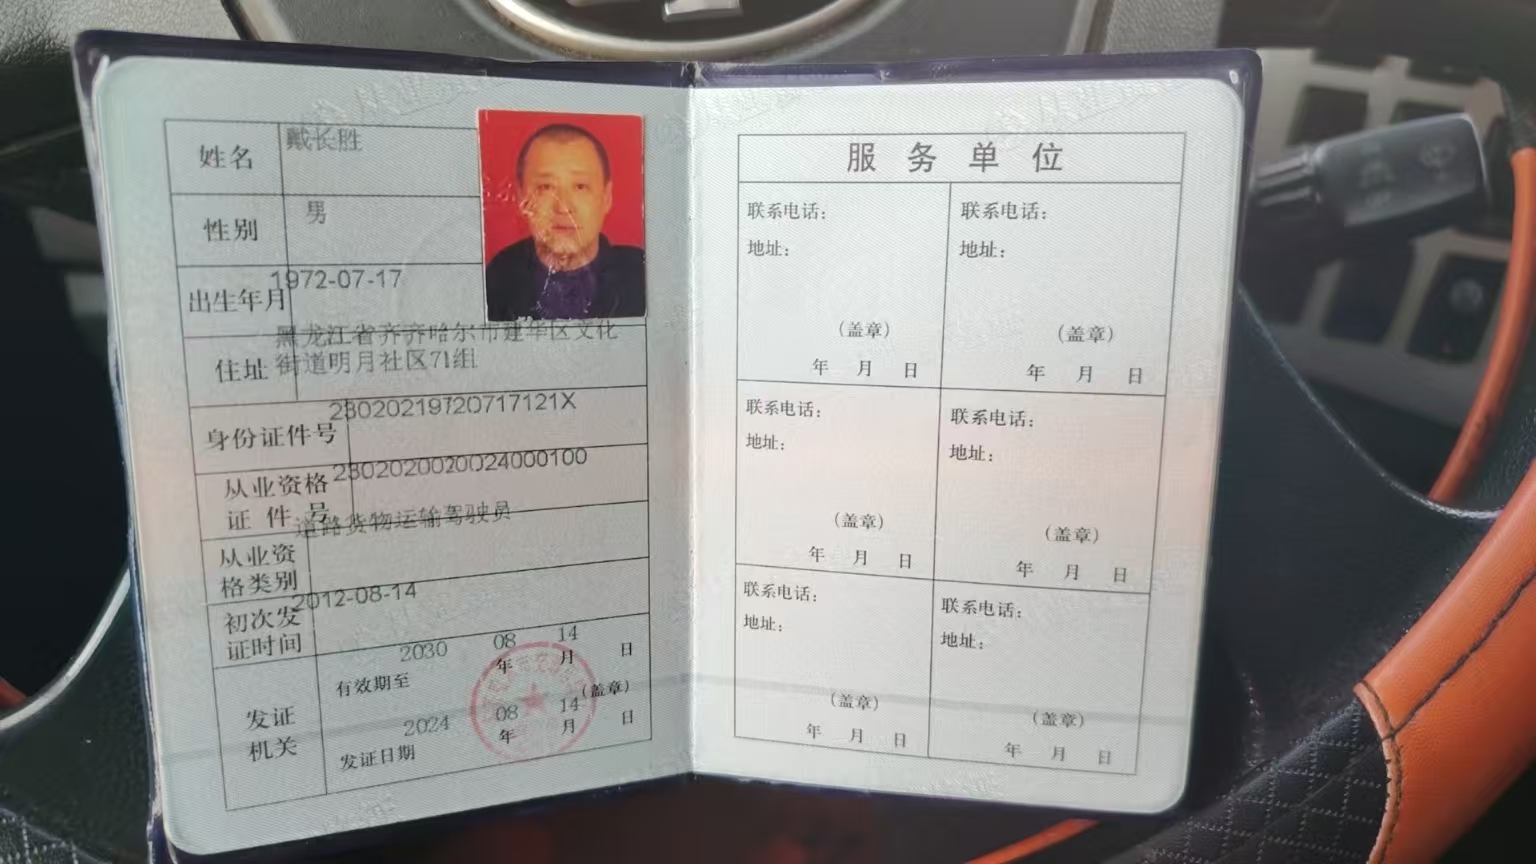 姓名 戴长胜
性别 男
出生年月 1972-07-17
住址 黑龙江省齐齐哈尔市建华区文化
街道明月社区71组
身份证件号 23020219720717121X
从业资格 2302020020024000100
证件号 道路货物运输驾驶员
从业资
格类别
初次发 2012-08-14
证时间
2030 08 14
有效期至 年 月 日
发证
机关
(盖章)
2024 08 14
发证日期 年 月 日
服务单位
联系电话:
地址:
(盖章)
年 月 日
联系电话:
地址:
(盖章)
年 月 日
联系电话:
地址:
(盖章)
年 月 日
联系电话:
地址:
(盖章)
年 月 日
联系电话:
地址:
(盖章)
年 月 日
联系电话:
地址:
(盖章)
年 月 日